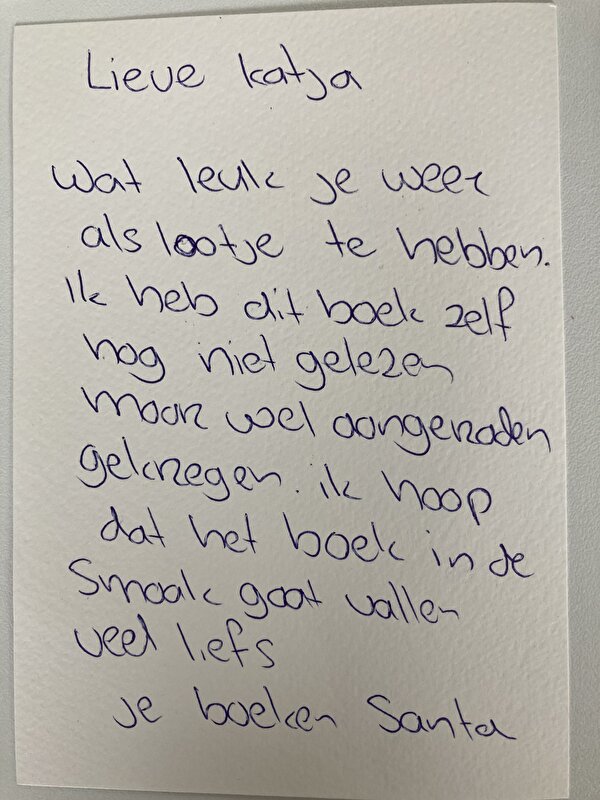 Lieve Katja
Wat leuk je weer
als lootje te hebben.
Ik heb dit boek zelf
nog niet gelezen
maar wel aangeraden
gekregen. ik hoop
dat het boek in de
Smaak gaat vallen
veel liefs
je boeken Santa